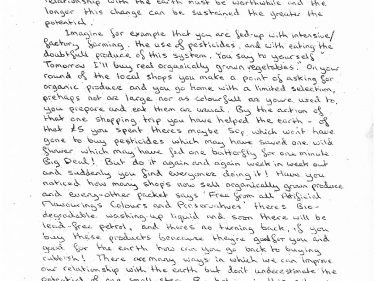 relationship with the earth must be worthwhile and the
longer this change can be sustained the greater the
potential.
Imagine for example that you are fed-up with intensive/
factory farming, the use of pesticides, and with eating the
doubtful produce of this system. You say to yourself
Tomorrow I'll buy real organically grown vegetables! On your
round of the local shops you make a point of asking for
organic produce and you go home with a limited selection,
prehaps not as large nor as colourful as you're used to
you prepare and eat them as usual. By the action of
that one shopping trip you have helped the earth - of
that £5 you spent there's maybe 50p which won't have
gone to buy pesticides which may have saved one wild
flower which may have fed one butterfly for one minute
Big Deal! But do it again and again week in week out
and suddenly you find everyone's doing it! Have you
noticed how many shops now sell organically grown produce
and every-other packet says 'Free from all Artificial
Flavourings Colours and Preservatives' there's Bio-
degradable washing-up liquid and soon there will be
lead-free petrol, and there's no turning back, if you
buy these products because they're good for you and
good for the earth how can you go back to buying
rubbish! There are many ways in which we can improve
our relationship with the earth but don't underestimate the
potential of one small step.